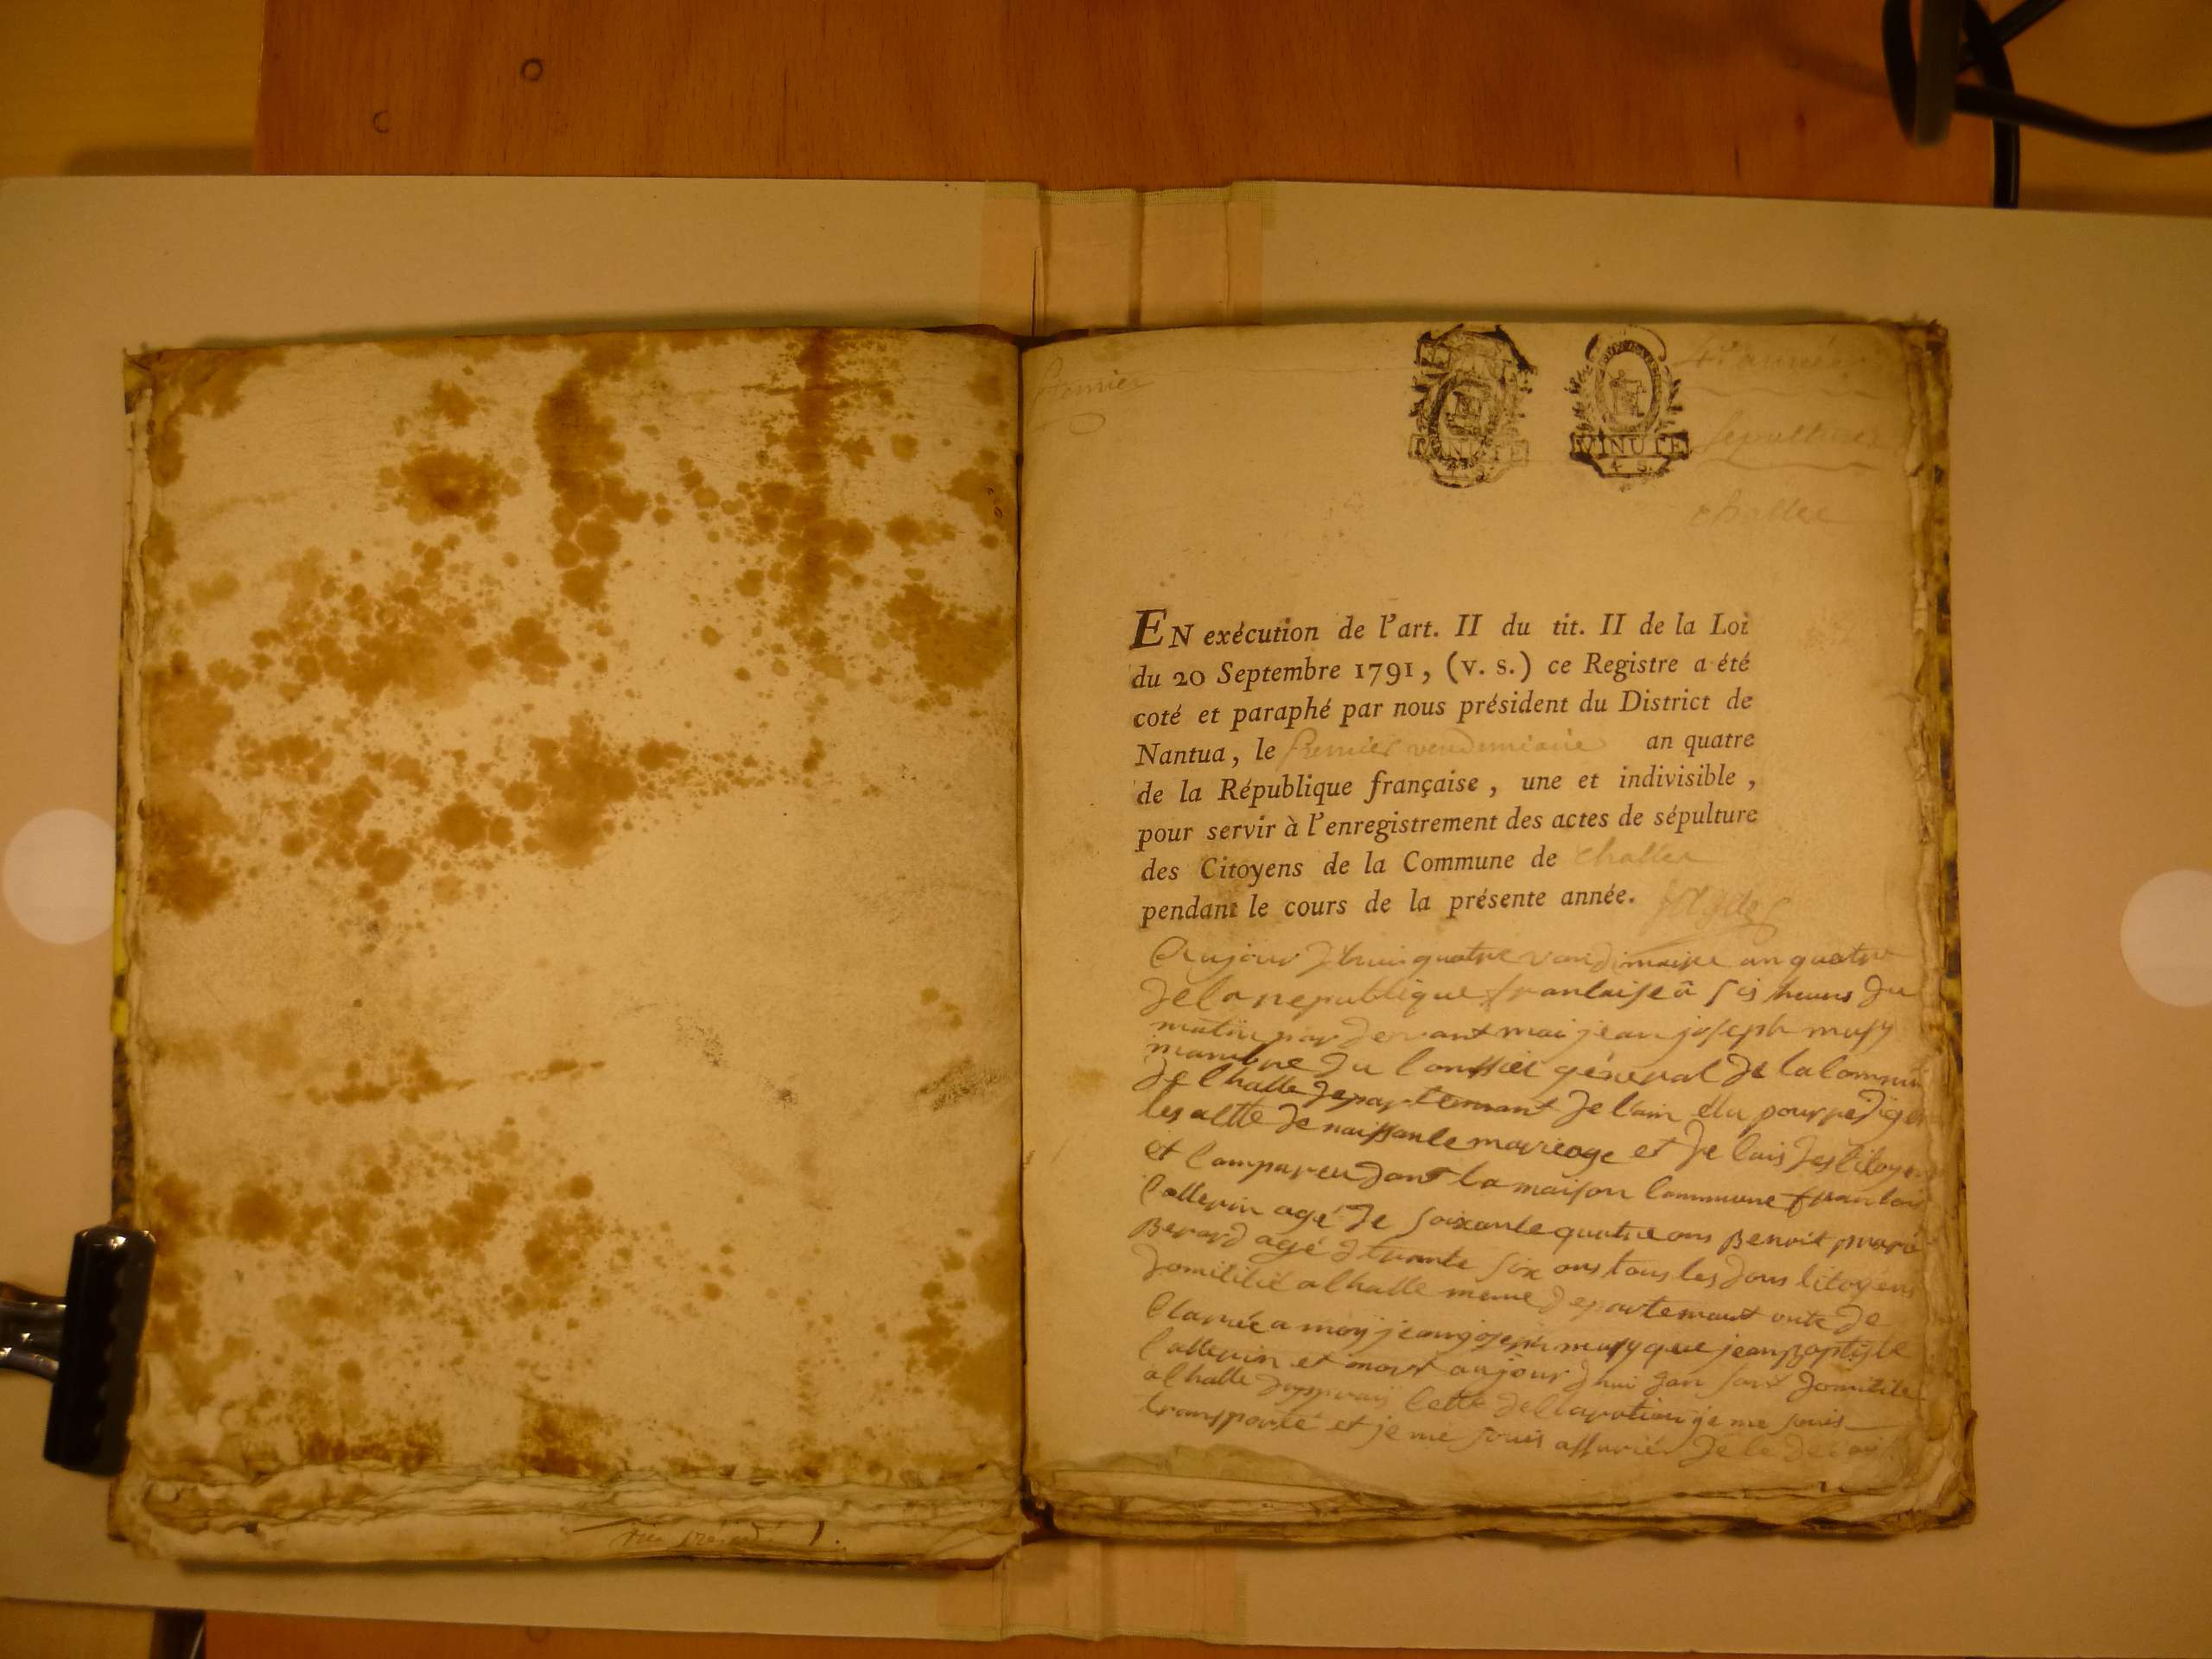 premier
MINUTE
MINUTE
4 S.
4e année
sepultures
challex
EN exécution de l'art. II du tit. II de la Loi
du 20 Septembre 1791, (v. s.) ce Registre a été
coté et paraphé par nous président du District de
Nantua, le premier vendemiaire an quatre
de la République française, une et indivisible,
pour servir à l'enregistrement des actes de sépulture
des Citoyens de la Commune de challex
pendant le cours de la présente année.
Aujour dhuis quatre vandimaire an quatre
de la republique franlaise a sis heures du
matin par devant moi jean joseph mussy
mambre du Conssiel géneral de la Commun
de Challe departemant de l'ain élu pour rediger
les actte de naissanle mariage et de lais des Citoyens
et Comparu dant la maison Commune franlois
Callerin agé de soixante quatre ans Benoit
Berard agé de trante six ans tous les dous Citoyens
domicilié a Challe meme departemant onte de
Clarrée a moy jean joseph mussy que jean Baptiste
Callerin et mort aujour dhui dan sont domicile
a Challe daspprais Cette dellaration je me suis
transporté et je me suis assurié de le